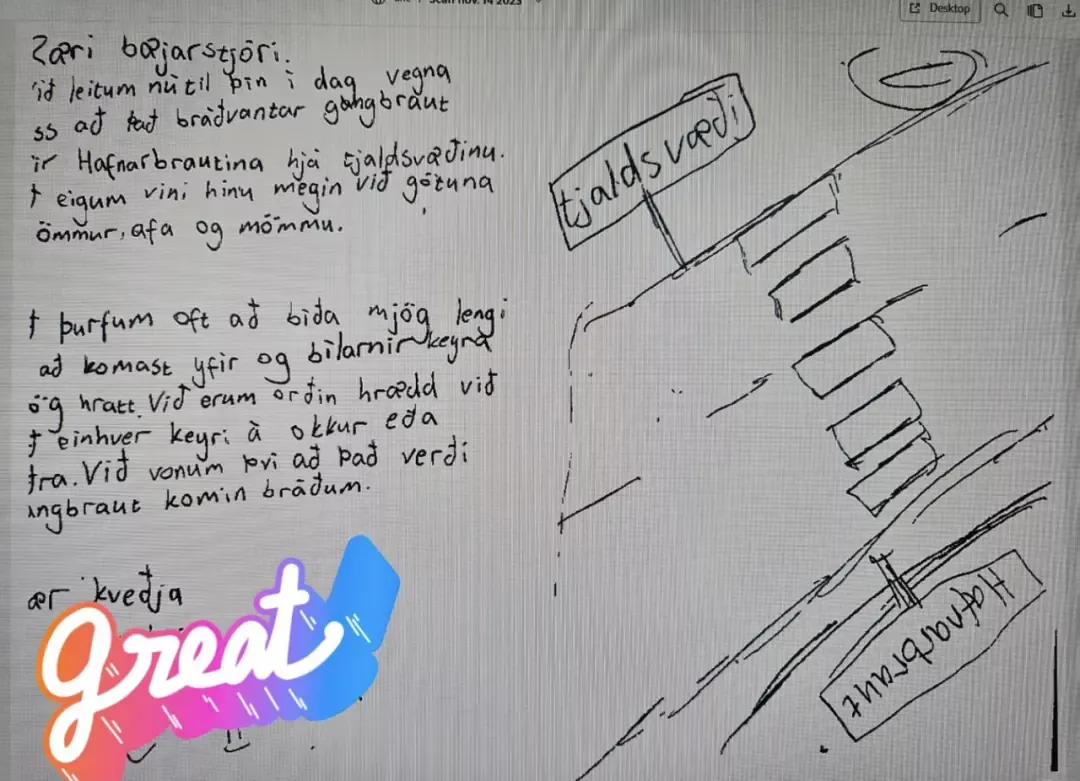 Desktop
bæjarstjóri.
leitum nú til þín í dag vegna
ss að það bráðvantar gangbraut
ir Hafnarbrautina hjá tjaldsvæðinu.
eigum vini hinu megin við götuna
ömmur, afa og mömmu.
þurfum oft að bíða mjög lengi
að komast yfir og bílarnir keyra
ög hratt. Við erum orðin hrædd við
einhver keyri á okkur eða
tra. Við vonum því að það verði
ngbraut komin bráðum.
ær kveðja
great
tjaldsvæði
Hafnarbraut